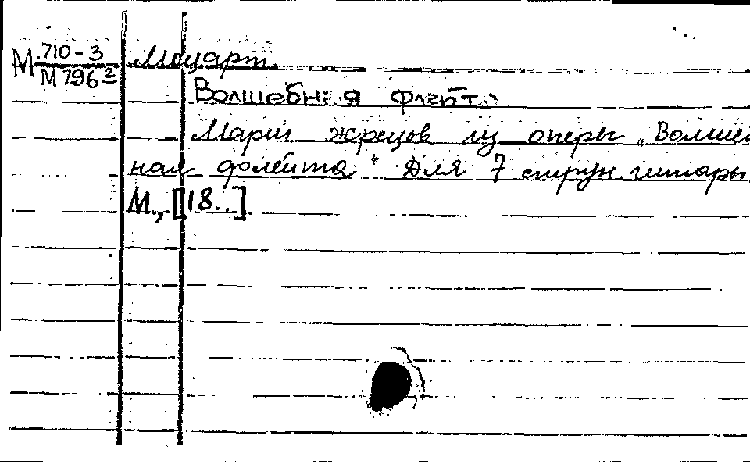 М 710-3 Моцарт
М 796²
Волшебная флейта
Марш жрецов из оперы „Волшеб
ная флейта" Для 7 струн. гитары
М., [18..].